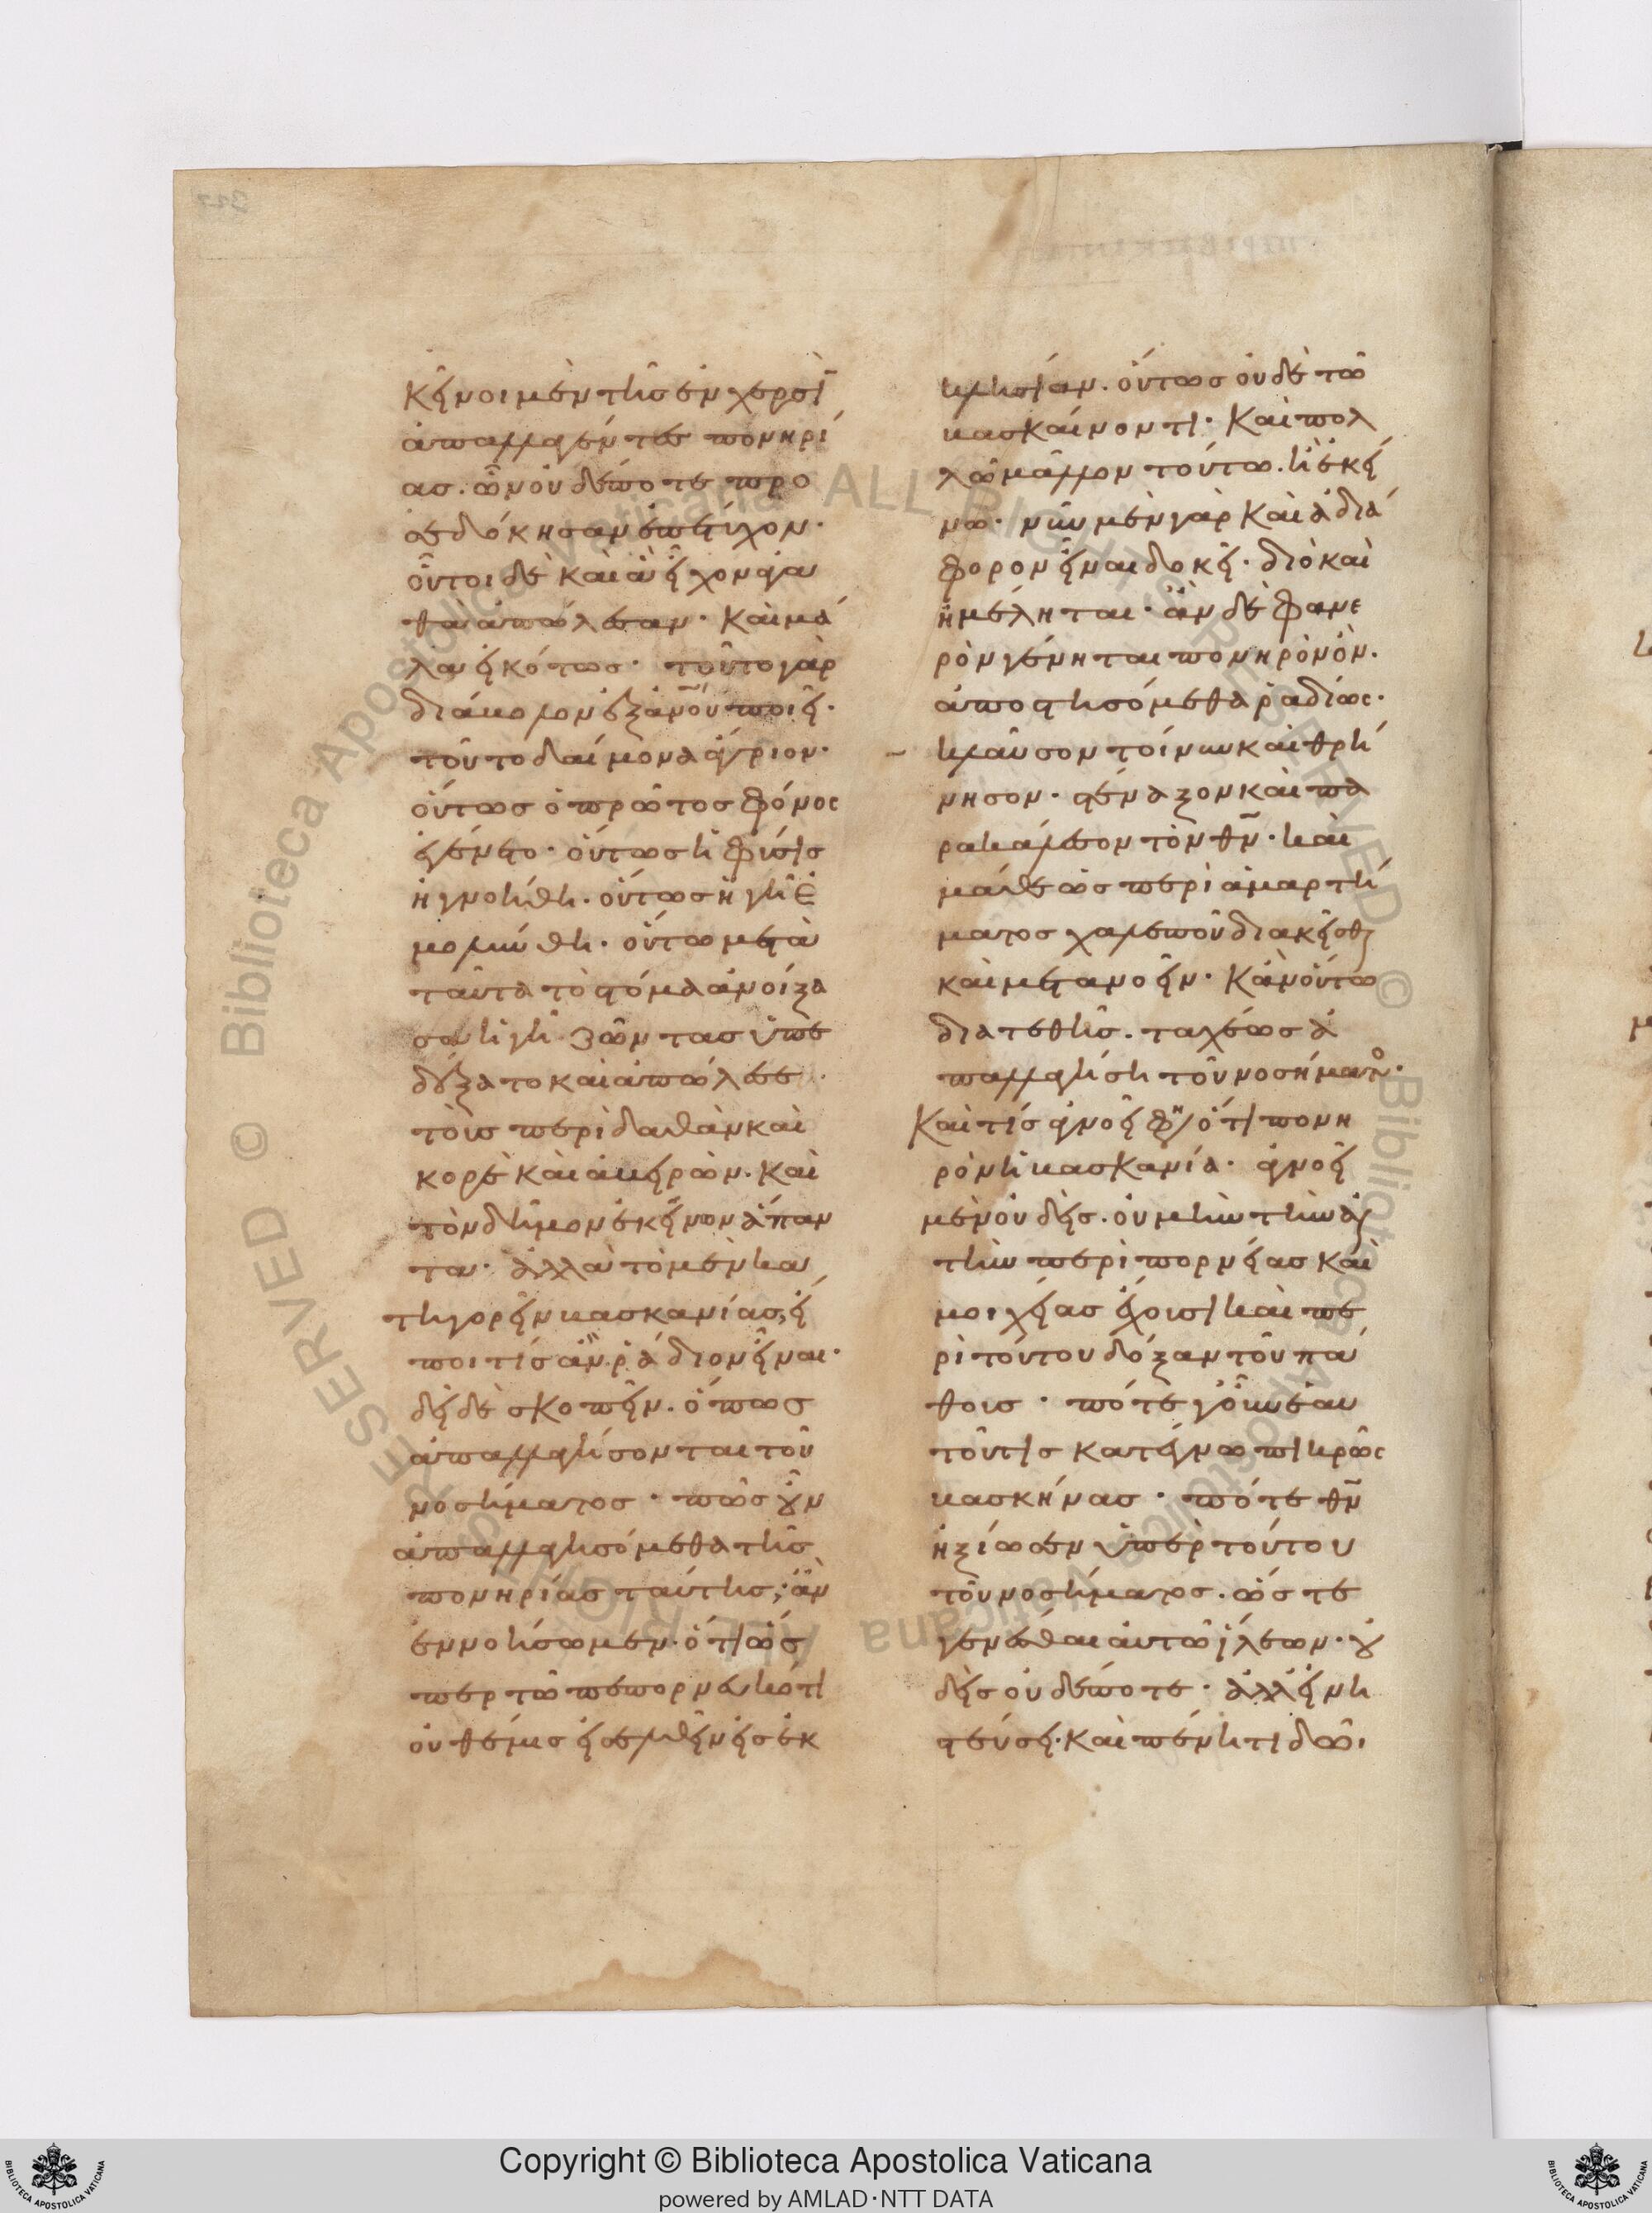 κεῖνοι μὲν τῆς ἐν χερσὶ
ἀπαλλαγέντες πονηρί
ας. ὧν οὐδέποτε προ
σεδόκησαν ἐπέτυχον.
οὗτοι δὲ καὶ ἃ εἶχον ἀγα
θὰ ἀπώλεσαν. καὶ μά
λα εἰκότως. τοῦτο γὰρ
διάβολον ἐξ ἀνοῦ ποιεῖ.
τοῦτο δαίμονα ἄγριον.
οὕτως ὁ πρῶτος φόνος
ἐγένετο. οὕτως ἡ φύσις
ἠγνοήθη. οὕτως ἡ γῆ ἐ
μολύνθη. οὕτω μετὰ
ταῦτα τὸ στόμα ἀνοίξα
σα ἡ γῆ ζῶντας ὑπε
δέξατο καὶ ἀπώλεσε
τοὺς περὶ δαθὰν καὶ
κορὲ καὶ ἀβειρὼν. καὶ
τὸν δῆμον ἐκεῖνον ἅπαν
τα. ἀλλὰ τὸ μὲν κα
τηγορεῖν βασκανίας, εἴ
ποι τίς ἂν ῥάδιον εἶναι.
δεῖ δὲ σκοπεῖν. ὅπως
ἀπαλλαγήσονται τοῦ
νοσήματος. πῶς οὖν
ἀπαλλαγησόμεθα τῆς
πονηρίας ταύτης; ἂν
ἐννοήσωμεν. ὅτι ὥσ
περ τῶ πεπορνευκότι
οὐ θέμις εἰσελθεῖν εἰς ἐκ
κλησίαν. οὕτως οὐδὲ τῶ
βασκαίνοντι. καὶ πολ
λῶ μᾶλλον τούτω. ἢ ἐκεί
νω. νῦν μὲν γὰρ καὶ ἀδιά
φορον εἶναι δοκεῖ. διὸ καὶ
ἠμέληται. ἂν δὲ φανε
ρὸν γένηται πονηρὸν ὂν.
ἀποστησόμεθα ῥαδίως.
κλαῦσον τοίνυν καὶ θρή
νησον. στέναξον καὶ πα
ρακάλεσον τὸν θν. καὶ
μάθε ὡς περὶ ἁμαρτή
ματος χαλεποῦ διακεῖσθαι
καὶ μετανοεῖν. κἂν οὕτω
διατεθῆς. ταχέως ἀ
παλλαγήση τοῦ νοσήματος.
Καὶ τίς ἀγνοεῖ φησιν ὅτι πονη
ρὸν ἡ βασκανία. ἀγνοεῖ
μὲν οὐδεὶς. οὐ μὴν τὴν αὐ
τὴν περὶ πορνείας καὶ
μοιχείας ἔχουσι καὶ πε
ρὶ τούτου δόξαν τοῦ πά
θους. πότε γοῦν ἑαυ
τοῦ τὶς κατέγνω πικρῶς
βασκήνας. πότε θν
ἠξίωσεν ὑπὲρ τούτου
τοῦ νοσήματος. ὥστε
γενέσθαι αὐτῶ ἵλεων. οὐ
δεὶς οὐδέποτε. ἀλλ' εἰ νη
στεύσει. καὶ πένητι δῶι